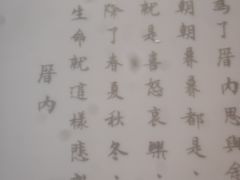 為了厝內思與
朝朝暮暮都是、
就是喜怒哀樂、
除了春夏秋冬、
生命就這樣悲
厝內